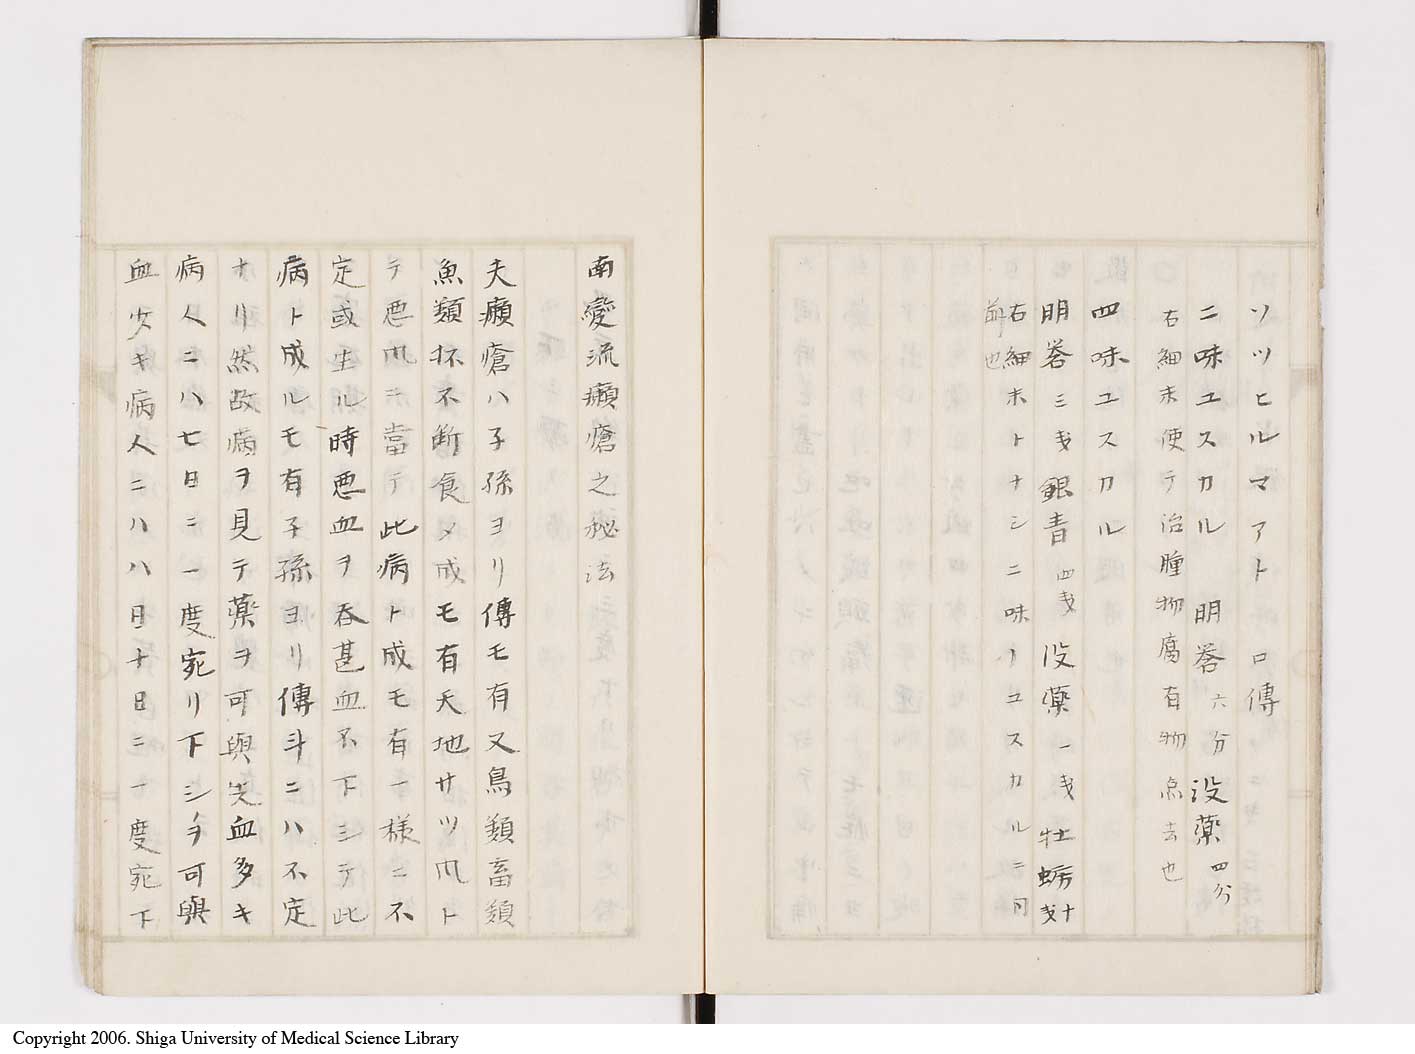 ソツヒルマアト　口傳
二味ユスカル　明礬六分没薬四分
右細末使テ治腫物腐有物急去也
四味ユスカル
明礬三戔銀青四戔没薬一戔牡蛎十戔
右細末トナシ二味ノユスカルニ同
前也
南蠻流癩瘡之秘法
夫癩瘡ハ子孫ヨリ傳モ有又鳥類畜類
魚類抔不断食メ成モ有天地サツ風ト
テ悪風ニ當テ此病ト成モ有一様ニ不
定或生ル時悪血ヲ呑甚血不下シテ此
病ト成ルモ有子孫ヨリ傳斗ニハ不定
ナリ然故病ヲ見テ薬ヲ可與先血多キ
病人ニハ七日ニ一度宛リ下シヲ可與
血少キ病人ニハ八日十日ニ一度宛下
Copyright 2006. Shiga University of Medical Science Library